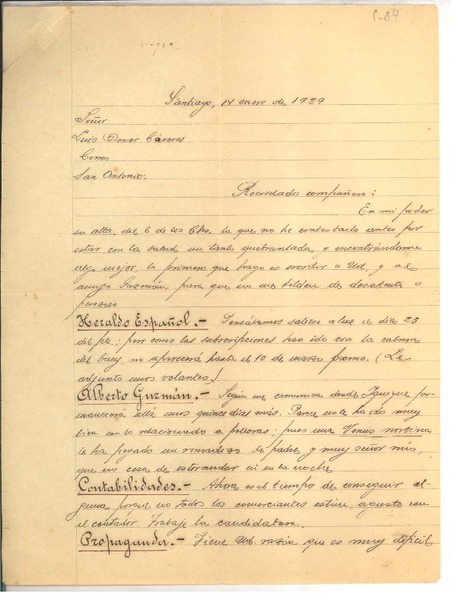 C-84
Santiago, 14 enero de 1939
Señor
Luis Omar Cáceres
Correo
San Antonio.
Recordado compañero:
En mi poder
su atta. del 6 de los Cts., la que no he contestado antes por
estar con la salud un tanto quebrantada, y encontrándome
algo mejor, lo primero que hago es escribir a Ud, y al
amigo Guzmán, para que no me tilden de desatento o
perezoso
Heraldo Español.- Pensábamos salir a luz el día 23
del pte.; pero como las subscripciones han ido con la calma
del buey no aparecerá hasta el 10 de marzo prmo. (Le
adjunto unos volantes.)
Alberto Guzmán.- Según me comunica desde Iquique per-
manecerá allá unos quince días más. Parece no le ha ido muy
bien en lo relacionado a polleras; pues una Venus nortina
le ha pegado un de padre y muy señor mío,
que es cosa de estornudar ni en la noche
Contabilidades.- Ahora es el tiempo de conseguir al-
guna porque no todos los comerciantes están a gusto con
el contador. Trabaje la candidatura.
Propaganda.- Tiene Ud. razón que es muy difícil